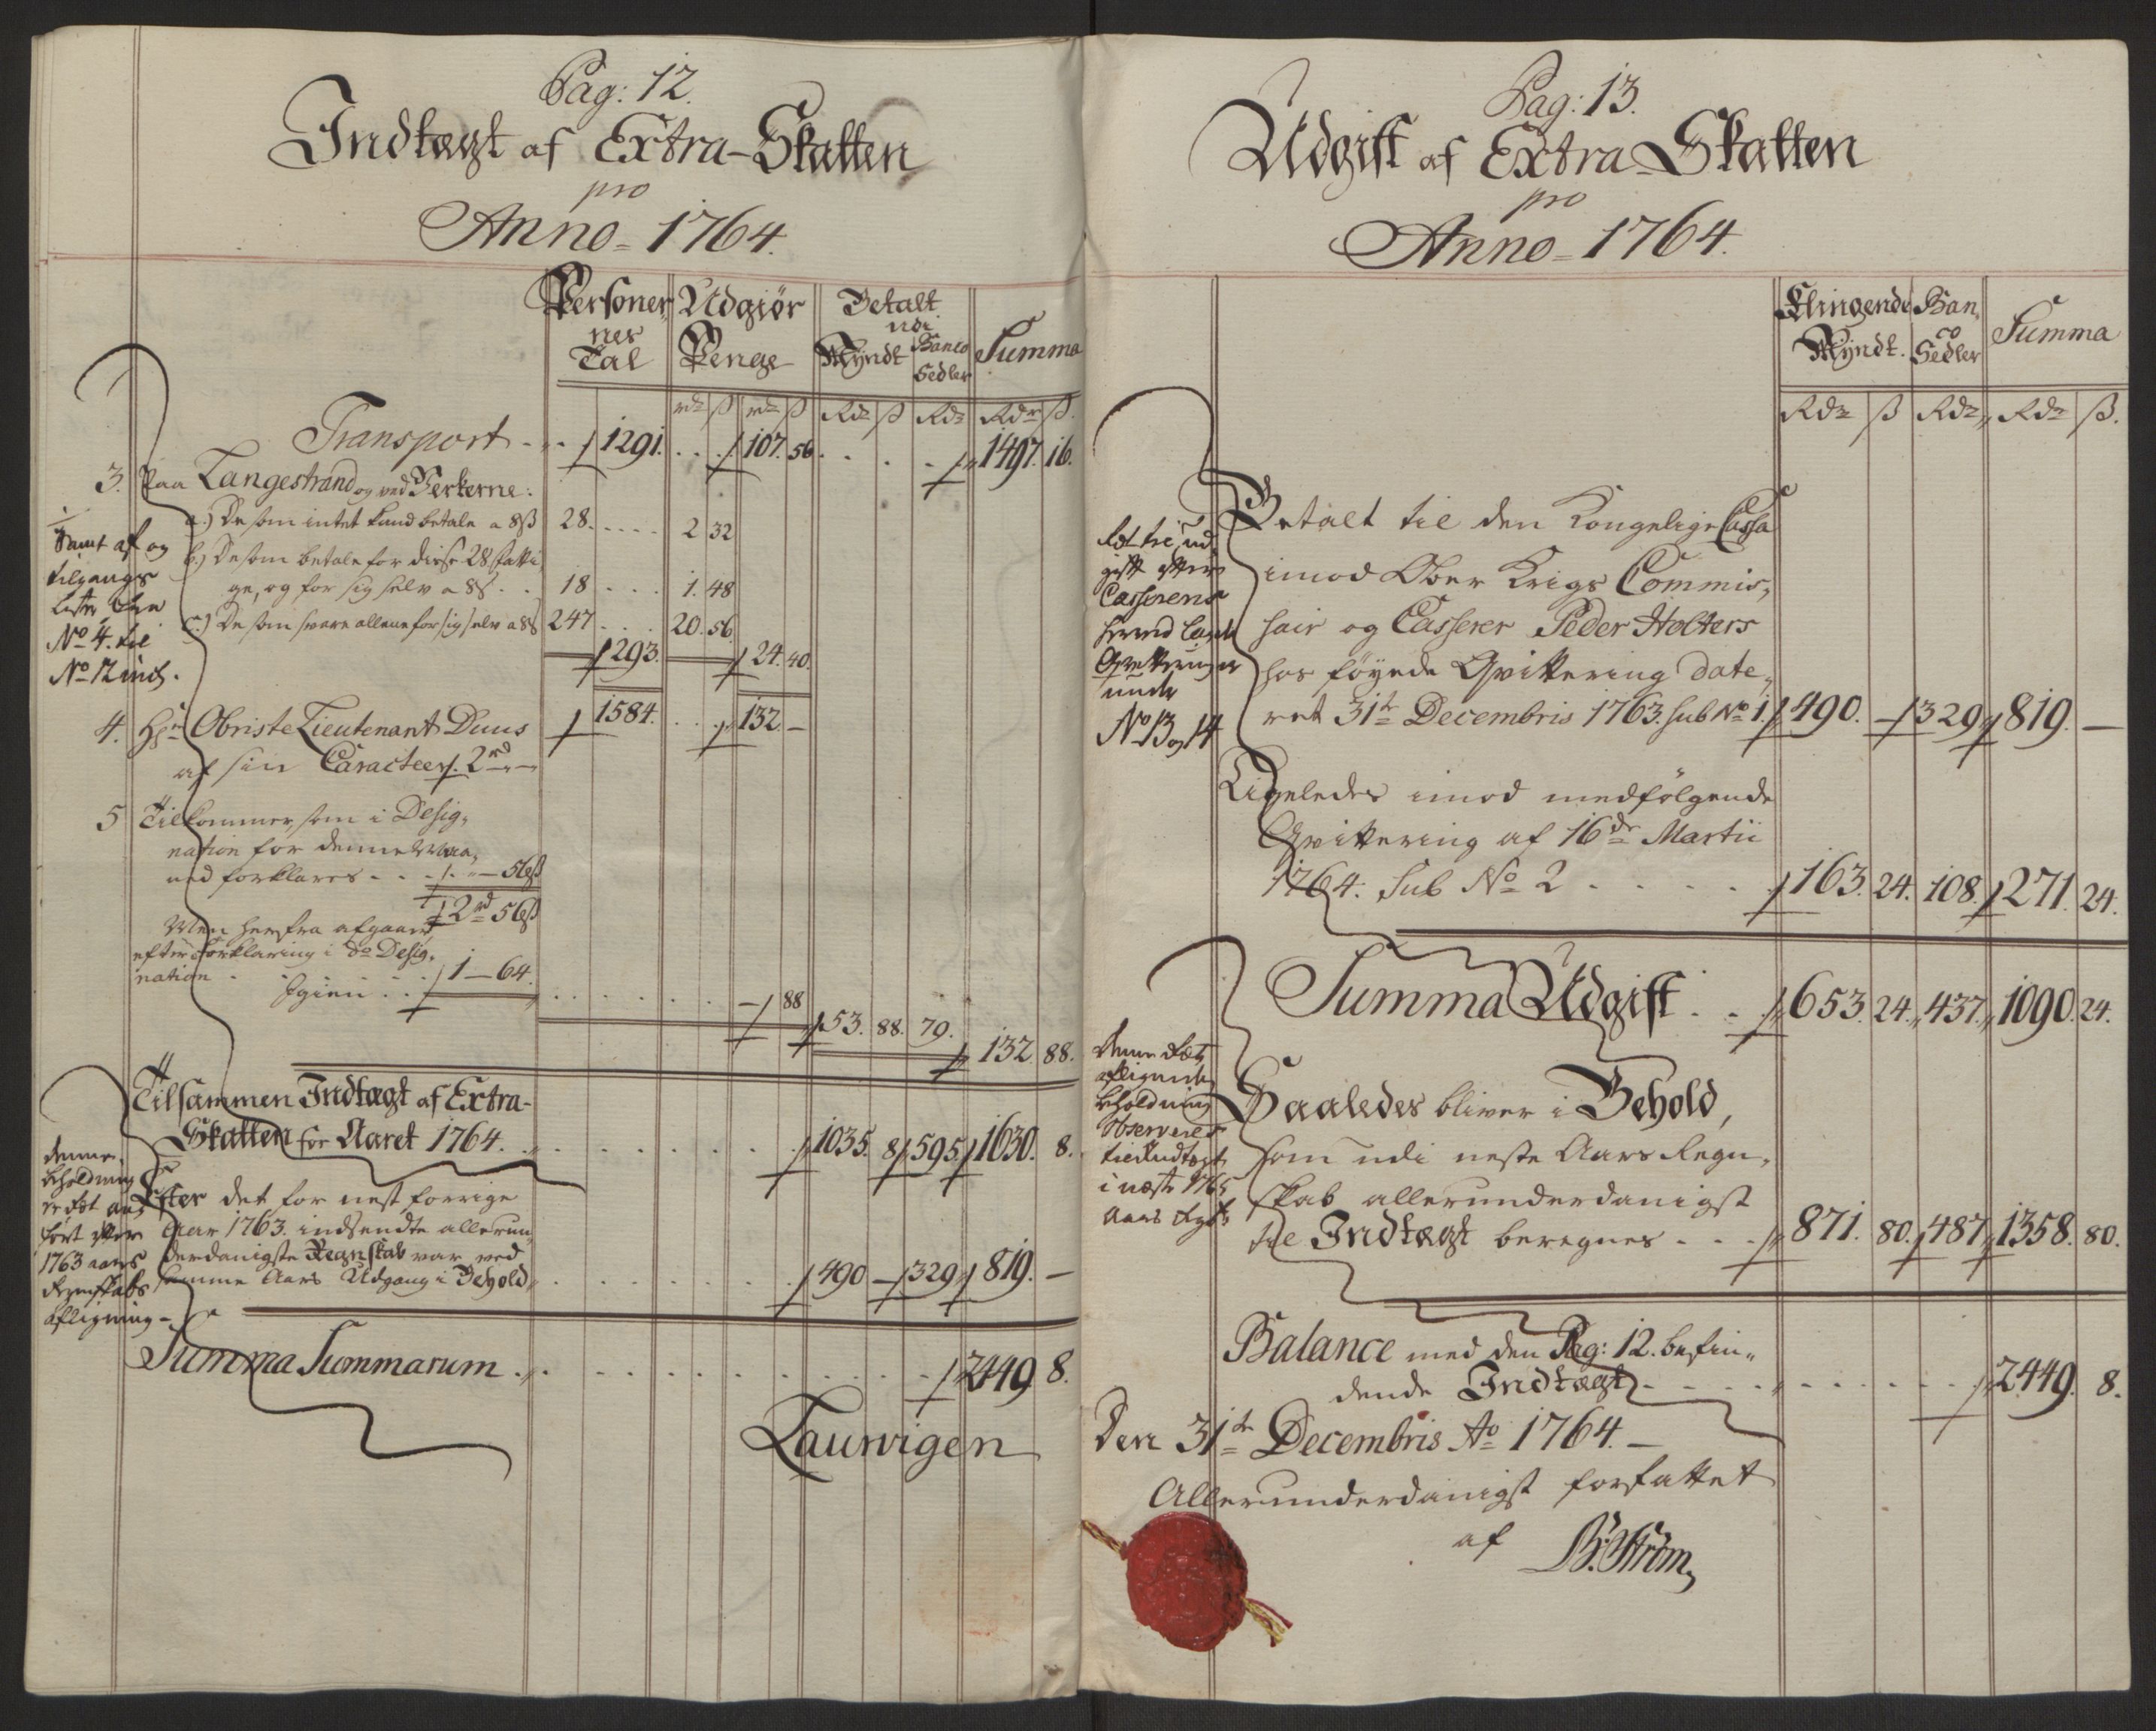 Pag: 12.
Indtægt af Extra-Skatten
pro
Anno = 1764.
Personer,
nes
Tal
Udgiør
Penge
Betalt
udi
Myndt
Banco
Sedler
Summa
rdr ß rdr ß Rdr ß Rdr Rdr ß.
Transport - 1291. 107. 56. 1497. 16.
3. Paa Langestrand og ved Verkerne:
a.) De som intet kand betale a 8ß 28. 2 32
b.) De som betale for disse 28 fatti,
ge, og for sig selv a 8ß 18 1. 48
c.) De som svare allene for sig selv a 8ß 247 20. 56
293. 24. 40.
1584. 132. -
Samt af og
tilgangs
Lister
No 4. til
No 12 incl.
4. Hr Obriste Lieutenant Duus
af sin Caracteer 2rd -
5 Tilkommer, som i Desig,
nation for denne Maa,
ned forklares - - - 56ß
2rd 56ß
Men herfra afgaaer
efter Forklaring i do Desig,
nation 1 - 64.
Igien . . - 88
53. 88. 79. 132. 88.
Tilsammen Indtægt af Extra-
Skatten for Aaret 1764. 1035. 8 595 1630. 8.
denne
beholdning
er ført an,
ført efter
1763 aars
Regnskabs
afligning -
Efter det for nest forrige
Aar 1763. indsendte allerun,
derdanigste Regnskab var ved
samme Aars Udgang i Behold 490 - 329 819. -
Summa Summarum 2449 8.
Laurvigen
Pag: 13.
Udgift af Extra-Skatten
pro
Anno = 1764.
Klingende
Myndt.
Ban,
co
Sedler
Summa
Rdr ß Rdr Rdr ß.
Betalt til den Kongelige Cassa
imod Ober Krigs Commis,
sair og Casserer Peder Holters
hos føyede Qvittering date,
ret 31te Decembris 1763. sub No 1. 490. - 329 819. -
til ud
gift efter
Casserens
Qvitteringer
under
No 13 og 14
Ligeledes imod medfølgende
Qvittering af 16de Martii
1764. Sub No 2 163. 24. 108. 271. 24.
Summa Udgift . . 653. 24. 437. 1090. 24.
denne
beholdning
observeres
til Indtægt
i næste 1765
Aars
Saaledes bliver i Behold,
som udi neste Aars Regn,
skab allerunderdanigst
til Indtægt beregnes - - - 871. 80. 487 1358. 80.
Balance med den Pag: 12. befin,,
dende Indtægt - - 2449. 8.
Den 31te Decembris Ao 1764. -
Allerunderdanigst forfattet
af B: Strøm,